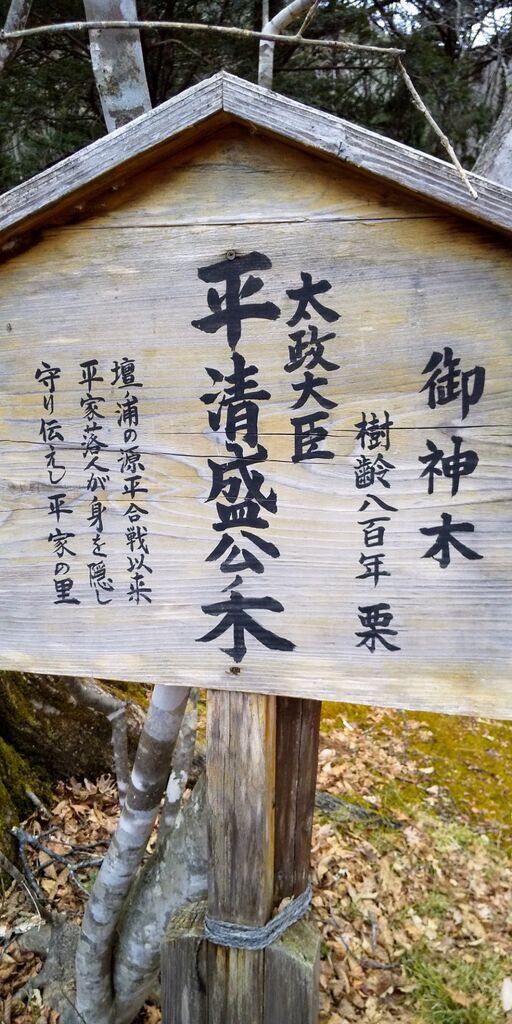 御神木
樹齢八百年 栗
太政大臣
平清盛公ノ木
壇ノ浦の源平合戦以来
平家落人が身を隠し
守り伝えし平家の里